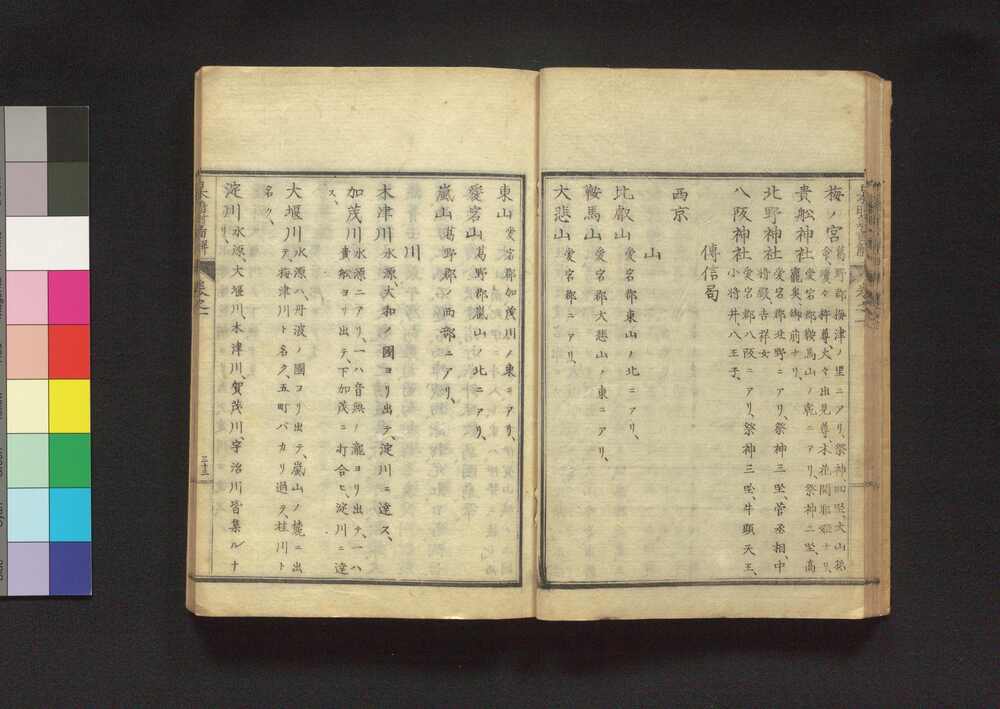 梅ノ宮 葛野郡梅津ノ里ニアリ、祭神四坐、大山祇
命、瓊々杵尊、火々出見尊、木花開耶姫ナリ、
貴船神社 愛宕郡鞍馬山ノ乾ニアリ、祭神二坐、高
龗奥、御前ナリ、
北野神社 愛宕郡北野ニアリ、祭神三坐、菅丞相、中
将殿、吉祥女
八阪神社 愛宕郡八阪ニアリ、祭神三坐、牛頭天王、
小将井、八王子、
傳信局
西京
山
比叡山 愛宕郡東山ノ北ニアリ、
鞍馬山 愛宕郡大悲山ノ東ニアリ、
大悲山 愛宕郡ニアリ、
東山 愛宕郡加茂川ノ東ニアリ、
愛宕山 葛野郡嵐山ノ北ニアリ、
嵐山 葛野郡ノ西郡ニアリ、
川
木津川 水源、大和ノ國ヨリ出テ、淀川ニ達ス、
加茂川 水源二アリ、一ハ音無ノ瀧ヨリ出テ、一ハ
貴船ヨリ出テ、下加茂ニ打合ヒ、淀川ニ達
ス、
大堰川 水源ハ、丹波ノ國ヨリ出テ、嵐山ノ麓ニ出
テ、梅津川ト名ク、五町バカリ過テ、桂川ト
名ク、
淀川 水源、大堰川、木津川、賀茂川、宇治川皆集ルナ
リ、
二十三